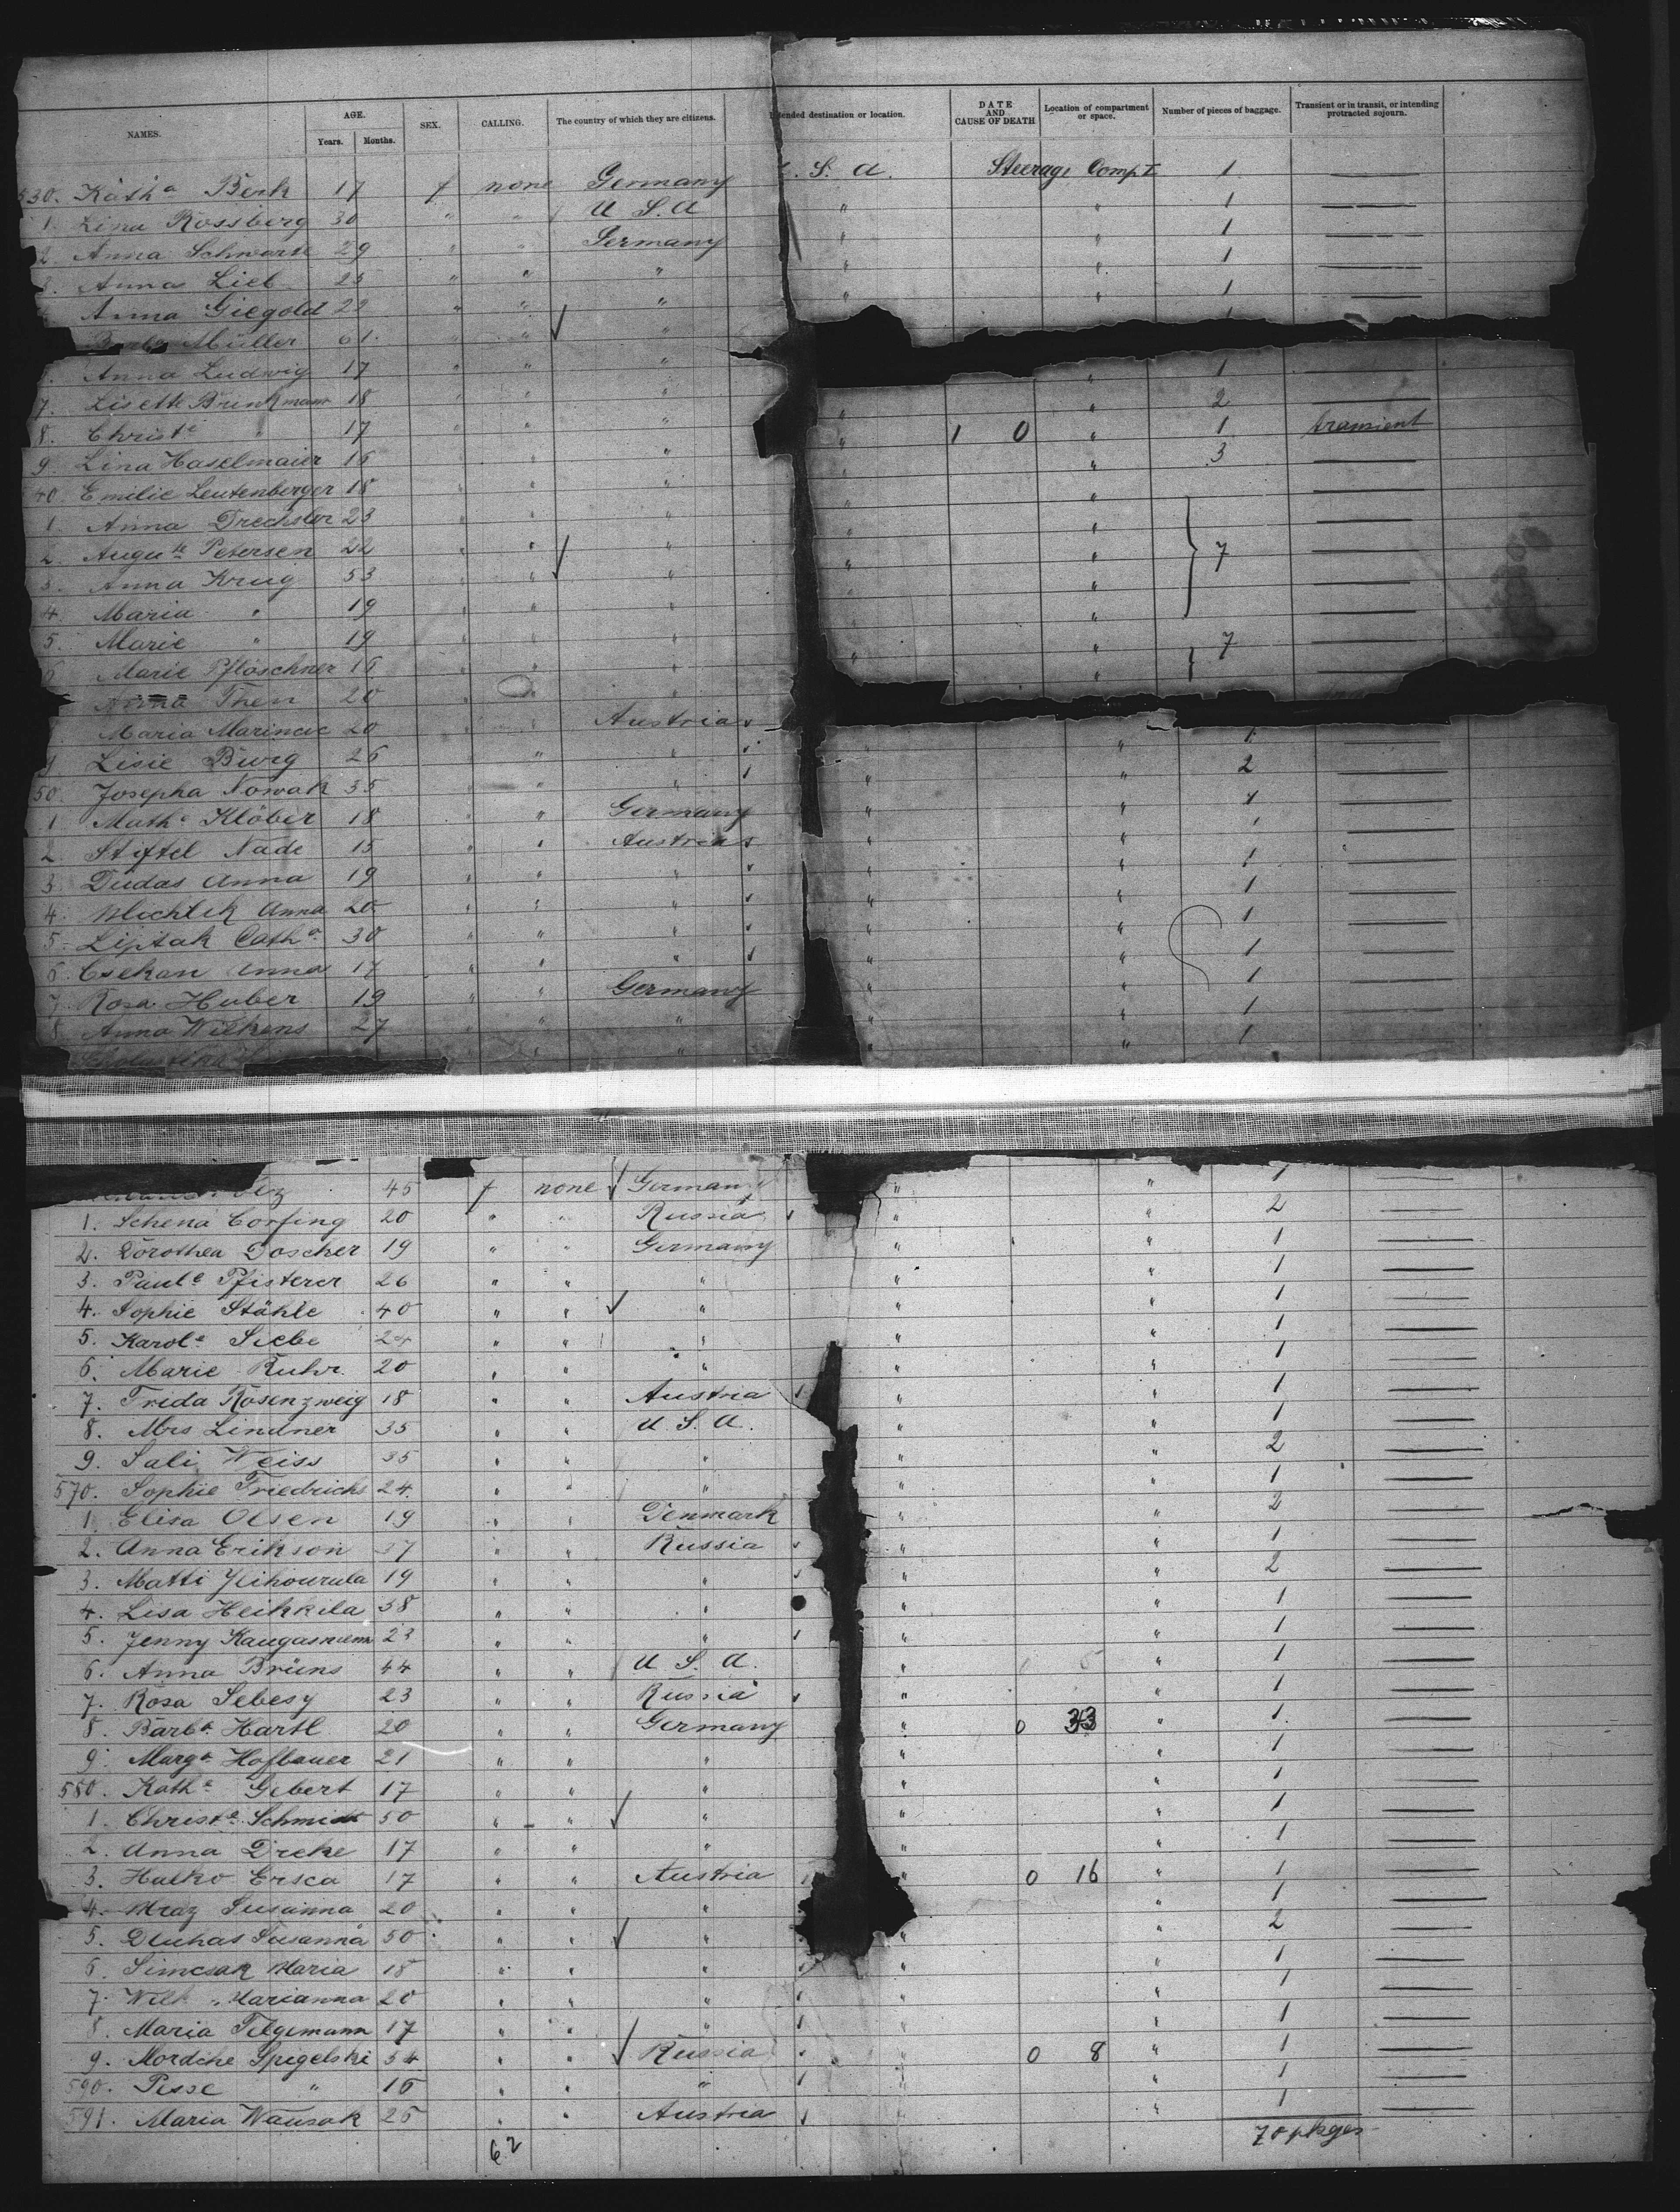 NAMES. AGE. Years. Months. SEX. CALLING. The country of which they are citizens. Intended destination or location. DATE AND CAUSE OF DEATH Location of compartment or space. Number of pieces of baggage. Transient or in transit, or intending protracted sojourn.
530. Kath^a Berk 17 f none Germany U. S. A. Steerage Comp I 1 —
1. Lina Rossberg 30 " " U S. A " " 1 —
2. Anna Schwarte 29 " " Germany " " 1 —
3. Anna Lieb 25 " " " " " 1 —
Anna Giegold 22 " " " " " 1 —
Müller 61 " " "
Anna Ludwig 17 " " " " 1 —
7. Lisette Brinkmann 18 " " " " " 2 —
8. Christ^e " 17 " " " " 1 0 " 1 transient
9. Lina Haselmaier 16 " " " " " 3 —
40. Emilie Leutenberger 18 " " " " " —
1. Anna Drechsler 23 " " " " " —
2. Augu^te Petersen 22 " " " " " 7 —
3. Anna Krug 53 " " " " —
4. Maria " 19 " " " " —
5. Marie " 19 " " " " " 7 —
6. Marie Pflöschner 16 " " " "
Anna Then 20 " " "
Maria Marincic 20 " " Austria 1 —
9 Lisie Burg 26 " " " " " 2 —
50. Josepha Nowak 35 " " " " " 1 —
1 Math^e Klöber 18 " " Germany " " 1 —
2. Stiftel Nade 15 " " Austria " " 1 —
3. Dudas Anna 19 " " " " " 1 —
4. Michlik Anna 20 " " " " " 1 —
5. Liptak Cath^a 30 " " " " " 1 —
6. Csekan Anna 17 " " " " " 1 —
7. Rosa Huber 19 " " Germany " " 1 —
8. Anna Wilkens 27 " " " " " 1 —
" " "
45 f none Germany " " 1 —
1. Schena Corfing 20 " " Russia " " 2 —
2. Dorothea Doscher 19 " " Germany " " 1 —
3. Paul^e Pfisterer 26 " " " " " 1 —
4. Sophie Stähle 40 " " " " " 1 —
5. Karol^e Siebe 24 " " " " " 1 —
6. Marie Ruhr. 20 " " " " " 1 —
7. Frida Rosenzweig 18 " " Austria " " 1 —
8. Mrs Lindner 35 " " U S. A. " " 1 —
9. Sali Weiss 35 " " " " " 2 —
570. Sophie Friedrichs 24. " " " " " 1 —
1. Elisa Olsen 19 " " Denmark " " 2 —
2. Anna Erikson 37 " " Russia " " 1 —
3. Matti 19 " " " " " 2 —
4. Lisa Heikkila 38 " " " " " 1 —
5. Jenny 23 " " " " " 1 —
6. Anna Brüns 44 " " U S. A. " " 1 —
7. Rosa Sebesy 23 " " Russia " " 1 —
8. Barb^a Hartl 20 " " Germany " 0 33 " 1. —
9. Marg^a Hofbauer 21 " " " " " 1 —
580. Kath^e Gebert 17 " " " " " 1 —
1. Christ^e Schmidt 50 " " " " " 1 —
2. Anna Dreke 17 " " " " " 1 —
3. Hulko Ersca 17 " " Austria " 0 16 " 1 —
4. Mraz Susanna 20 " " " " 1 —
5. Dluhas Susanna 50 " " " " 2 —
6. Simcsak Maria 18 " " " " " 1 —
7. Wilk Marianna 20 " " " " " 1 —
8. Maria Tilgemann 17 " " " " " 1 —
9. Mordche Spigelski 54 " " Russia " 0 8 " 1 —
590. Pesse " 16 " " " " " 1 —
591. Maria Wausak 25 " " Austria " " 1 —
62 70 pkges